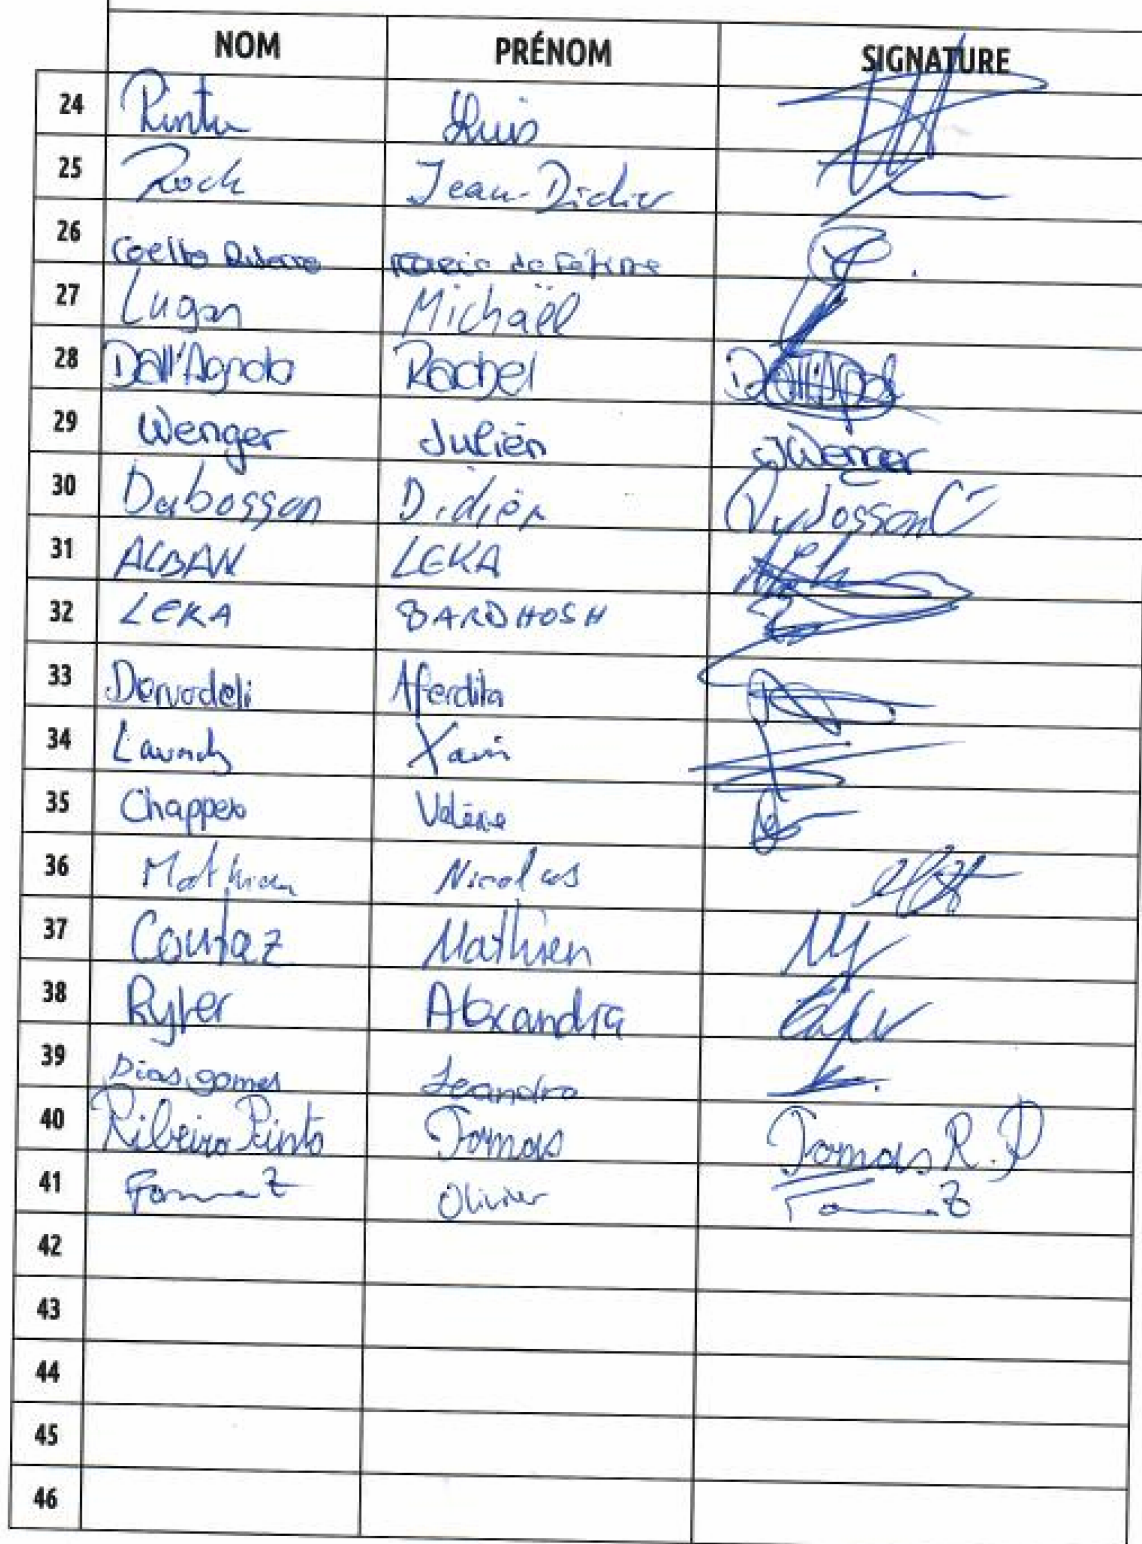 NOM PRÉNOM SIGNATURE
24 Pinto Luis
25 Rock Jean-Didier
26 Coelho Ribeiro Maria de Fátima
27 Lugon Michaël
28 Dall'Agnolo Rachel
29 Wenger Julien JWenger
30 Dubosson Didier
31 ALBAN LEKA
32 LEKA BARDHOSH
33 Dervodeli Aferdita
34 Xavier
35 Valérie
36 Mathieu Nicolas
37 Coutaz Mathieu
38 Ryter Alexandra
39 Dias gomes Leandro
40 Ribeiro Pinto Tomas Tomas R. P
41 Olivier
42
43
44
45
46